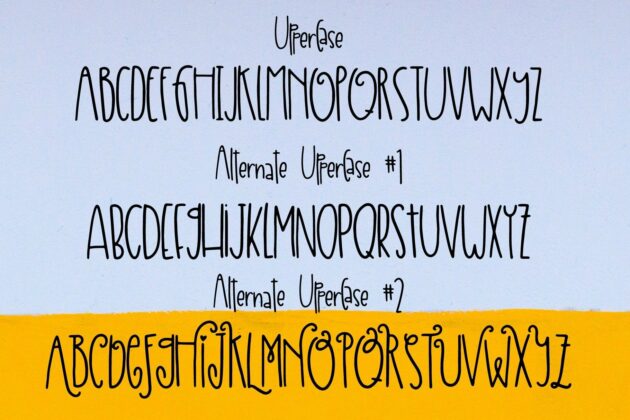 UpperCase
ABCDEFGHIJKLMNOPQRSTUVWXYZ
Alternate UpperCase #1
ABCDEFgHiJKLMNOPQRStUVWXYZ
Alternate UpperCase #2
ABCDeFgHiJKLMNOPQRSTUVWXYZ